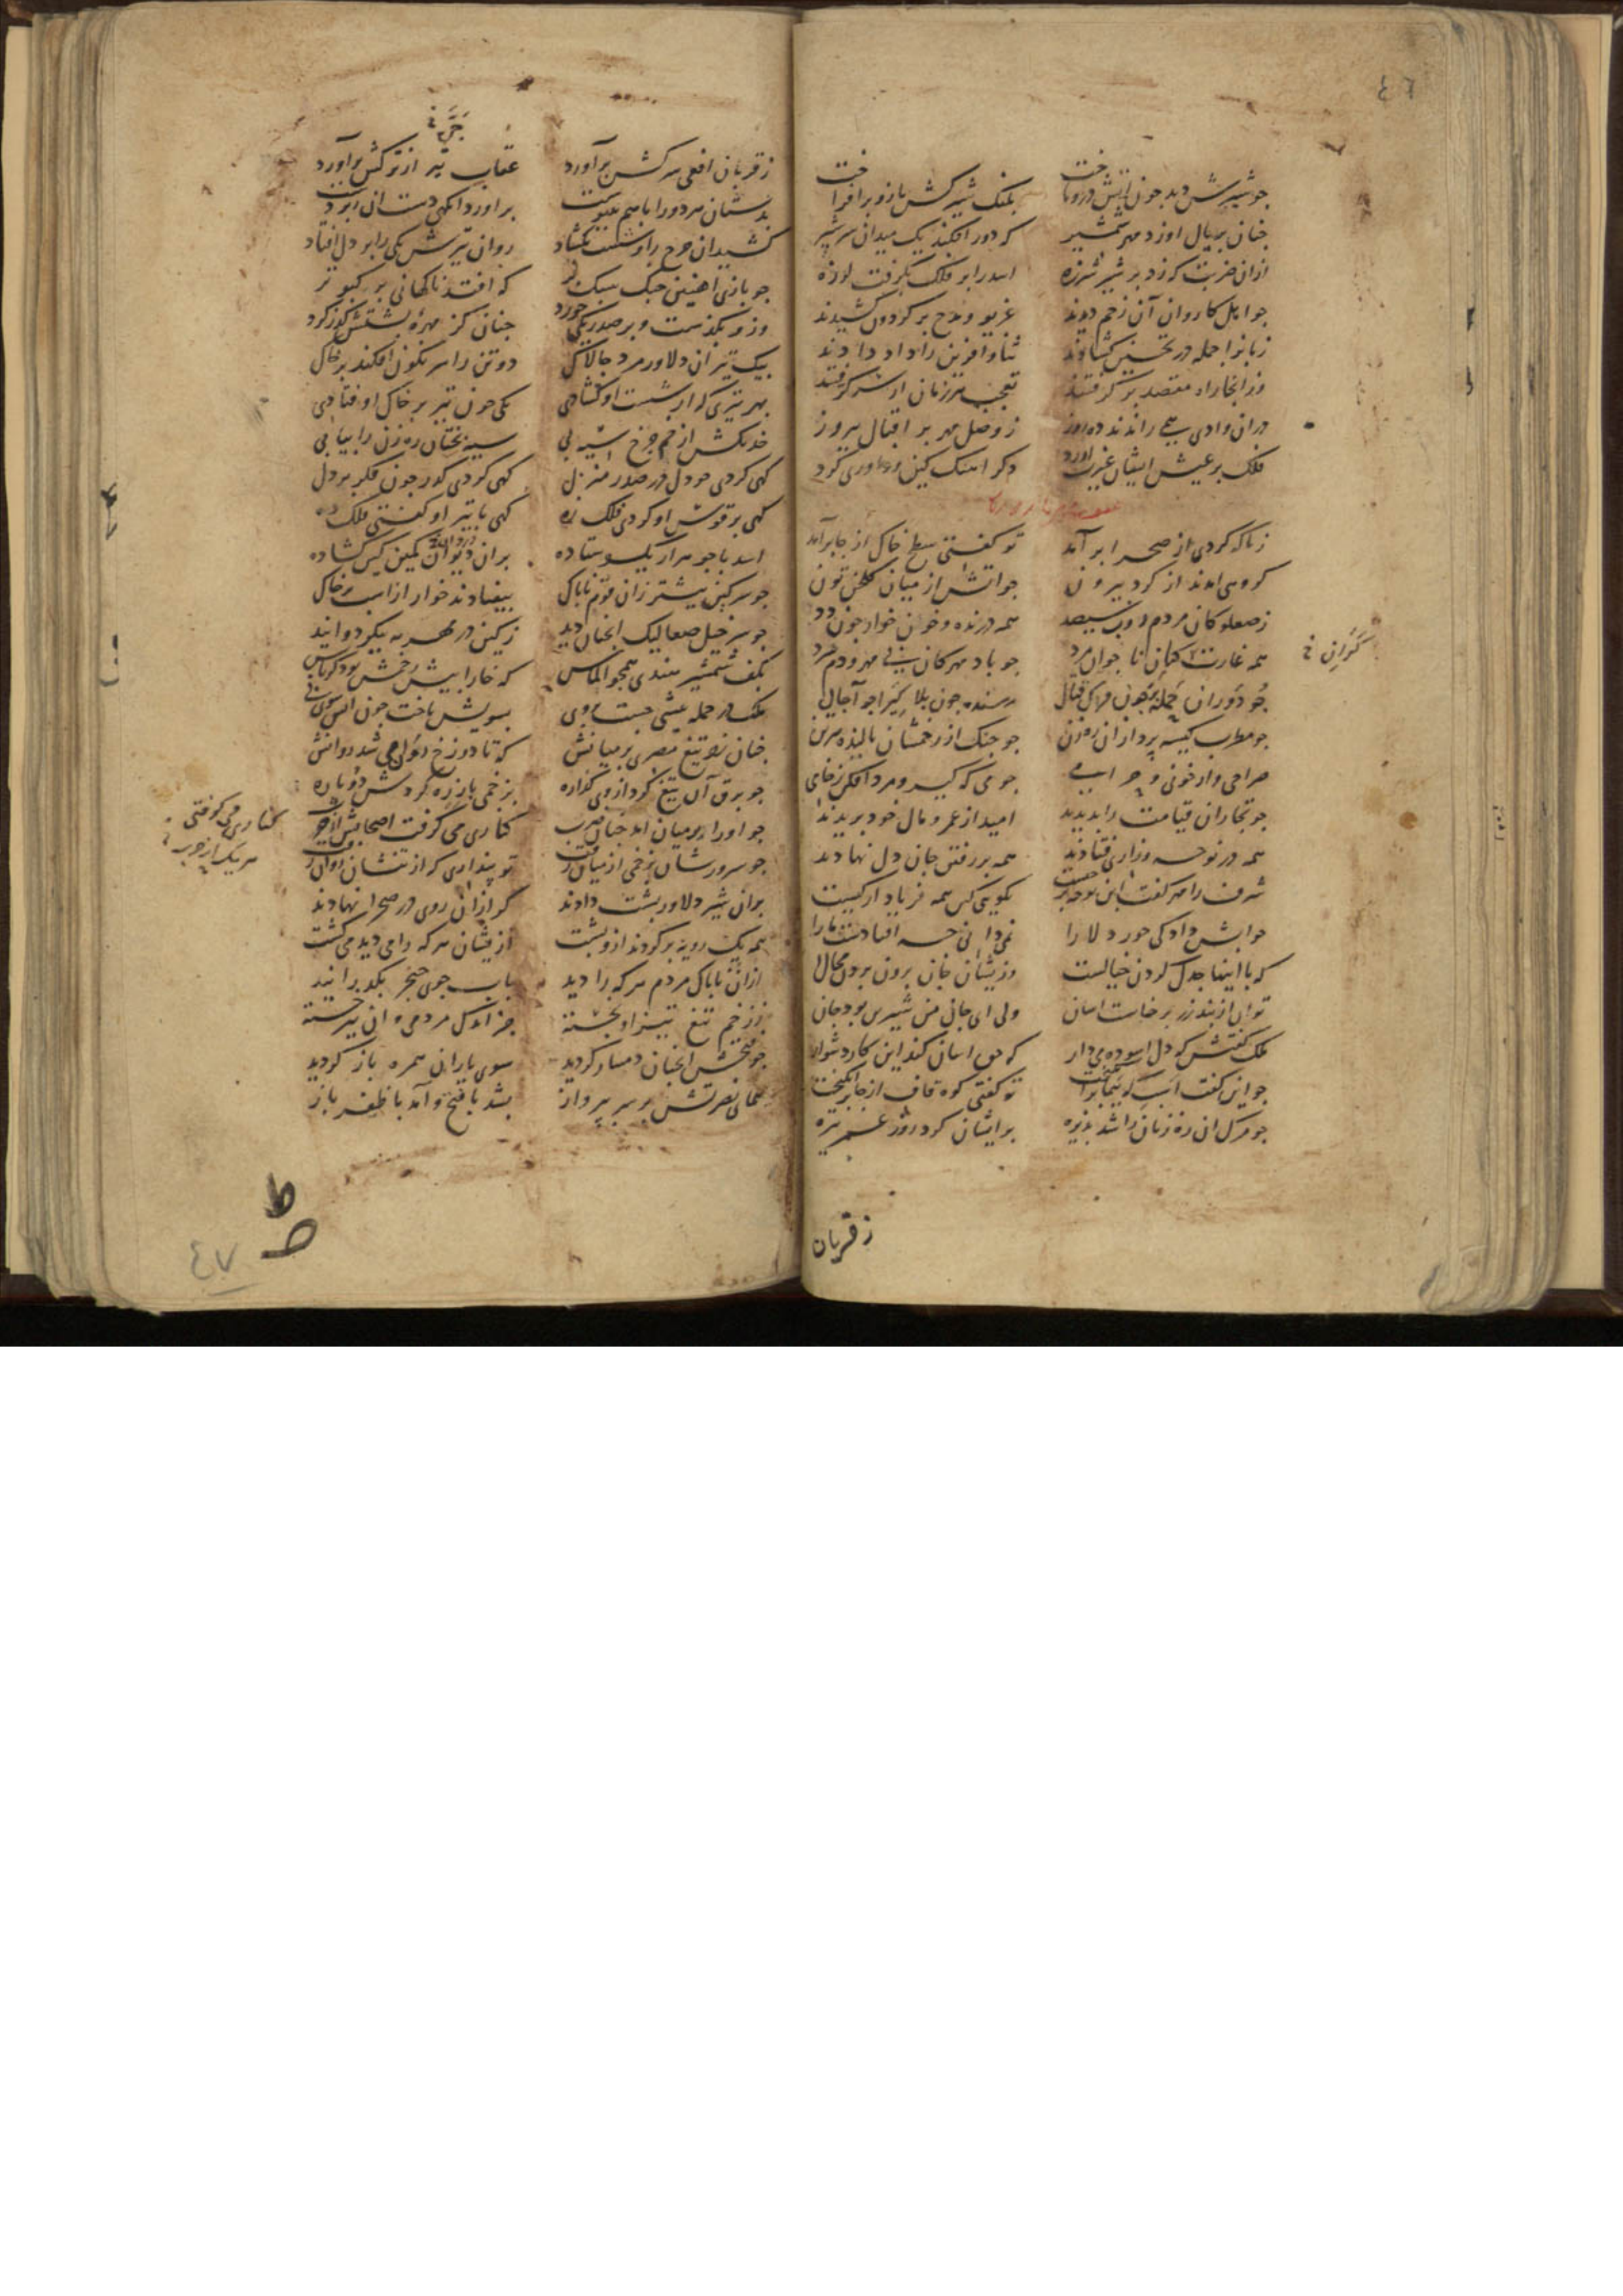 ٤٦
جو شیرش دید جون آتش در و تاخت ملک شیر کش بازو برافراخت
جنان بر یال او زد مهر شمشیر که دور افکند یک میدان سر شیر
ازان ضربت که زد بر شیر شرزه اسد را بر فلک بگرفت لرزه
جو اهل کاروان آن زخم دیدند غریو و مدح بر کردون کشیدند
زبانها جمله در تحسین کشادند ثنا و آفرین را داد دادند
وز انجا راه مقصد بر کرفتند تعجب هر زمان از سر کرفتند
دران وادی همی راندند ده روز ز وصل مهر بر اقبال پیروز
فلک بر عیش ایشان غیرت آورد دکر آهنک کین و داوری کرد
زناکه کردی از صحرا بر آمد تو کفتی سطح خاک از جا بر آمد
کروهی آمدند از کرد بیرون جو آتش از میان کلخن تون
ز صعلوکان مردم دزد سیصد همه درنده و خون خوار جون دد
همه غارت کنان ناجوانمرد جو باد مهرکان بی مهر و دم سرد
کران فی
جو دوران جمله جون قتال رسنده جون بلا کیرا جو آجال
جو مطرب کیسه پردازان ره زن جو جنک از زخمشان نالیده هر تن
صراحی وار خونی و حرامی جو می که کیر و مرد افکن ز خامی
جو تجاران قیامت را بدیدند امید از عمر و مال خود بریدند
همه در نوحه و زاری فتادند همه بر رفتن جان دل نهادند
شرف را مهر کفت این نوحه جیست نکویی کین همه فریاد از کیست
جوابش داد کی نمی دانی جه افتادست ما را
که با اینها جدل کردن خیالست وز ایشان جان برون بردن محالست
توان از بند زر بر خاست آسان ولی ای جان من شیرین بود جان
ملک کفتش که دل آسوده می دار که حق آسان کند این کار دشوار
جو این کفت اسب که پیما بر انکیخت تو کفتی کوه قاف از جا بر انکیخت
جو مرک ان ره زنان را شد پذیره بر ایشان کرد روز عمر تیره
ز قربان
جری فی
ز قربان افعی سر کش بر آورد عقاب تیر از ترکش بر آورد
بدستان هر دو را با هم بپیوست بر آورد آنکهی دست
کشید ان جرخ را و شست بکشاد روان تیرش یکی را بر دل افتاد
جو بازی آهنین جنک سبک پر که افتد ناکهانی بر کبوتر
وزو بکذشت و بر صدر یکی خورد جنان کز مهره پشتش کذر کرد
بیک تیر ان دلاور مرد جالاک دو تن را سرنکون افکند بر خاک
بهر تیری که از شست او کشادی یکی جون تیر بر خاک اوفتادی
خدنکش از خم جرخ سیه بختان ره زن را بیابی
کهی کردی جو دل در صدر منزل کهی کردی کذر جون فکر بر دل
کهی بر قوس او کردی فلک زه کهی با تیر او کفتی فلک ده
اسد با جوهر از یک سو ستاده بران دیوان کمین کین کشاده
جو هر کین بیشتر زان قوم ناباک بیفتادند خوار از اسب بر خاک
جو سر خیل صعالیک آنجنان دید ز کین در مهر
بکف شمشیر هندی همجو الماس که خارا بیش زخمش بود کرباس
ملک در حمله بسویش تاخت جون آتش سوی نی
جنان زد تیغ مصری بر میانش که تا دوزخ دوان می شد روانش
جو برق آن تیغ کرد از وی کذاره بزخمی باز زه کردش دو باره
جو او را بر میان آمد جنان ضرب کناری می کرفت اصحابش از حرب
کناری می کرفتی هر یک از حرب
جو سرورشان بزخمی از میان رفت تو پنداری که از تنشان روان رفت
بران شیر دلاور پشت دادند کرازان روی در صحرا نهادند
همه یک رویه بر کردند ازو پشت از یشان هر که را می دید می کشت
ازان ناباک مردم هر که را دید بآب جوی خنجر
ز زخم تیغ تیز او نجسته جز اندک مردمی و ان نیز خسته
جو فتحش آنجنان دمساز کردید سوی یاران همره باز کردید
همای نصرتش بر سر پرواز بشد با فتح و آمد با ظفر باز
٤٧